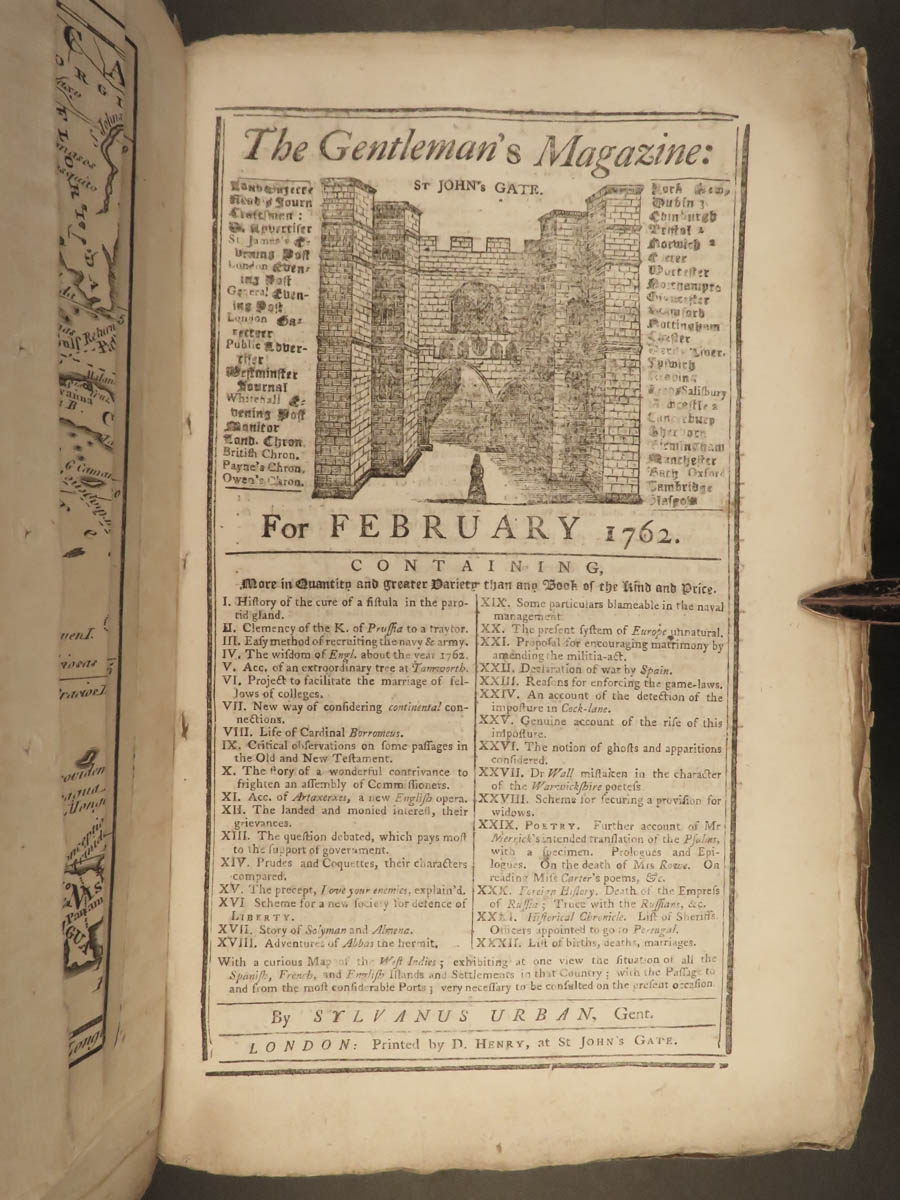 The Gentleman's Magazine:
St JOHN's GATE.
Lond Gazette
Read's Journ
Craftsman :
D. Advertiser
St. James's E-
vening Post
London Even-
ing Post
General Even-
ing Post
London Ga-
zetteer
Public Adver-
tiser
Westminster
Journal
Whitehall E-
vening Post
Monitor
Lond. Chron.
British Chron.
Payne's Chron.
Owen's Chron.
York
Dublin 3
Edinburgh
Bristol 2
Norwich 2
Exeter
Worcester
Northampto
Gloucester
Stamford
Nottingham
Chester
Ipswich
Reading
Salisbury
Newcastle 2
Canterbury
Sherborn
Birmingham
Manchester
Bath Oxford
Cambridge
Glasgow
For FEBRUARY 1762.
CONTAINING,
More in Quantity and greater Variety than any Book of the Kind and Price.
I. History of the cure of a fistula in the paro-
tid gland.
II. Clemency of the K. of Prussia to a traytor.
III. Easy method of recruiting the navy & army.
IV. The wisdom of Engl. about the year 1762.
V. Acc. of an extroordinary tree at Tamworth.
VI. Project to facilitate the marriage of fel-
lows of colleges.
VII. New way of considering continental con-
nections.
VIII. Life of Cardinal Borromeus.
IX. Critical observations on some passages in
the Old and New Testament.
X. The story of a wonderful contrivance to
frighten an assembly of Commissioners.
XI. Acc. of Artaxerxes, a new English opera.
XII. The landed and monied interest, their
grievances.
XIII. The question debated, which pays most
to the support of government.
XIV. Prudes and Coquettes, their characters
compared.
XV. The precept, Love your enemies, explain'd.
XVI Scheme for a new society for defence of
LIBERTY.
XVII. Story of Solyman and Almena.
XVIII. Adventures of Abbas the hermit.
XIX. Some particulars blameable in the naval
management.
XX. The present system of Europe unnatural.
XXI. Proposal for encouraging matrimony by
amending the militia-act.
XXII. Declaration of war by Spain.
XXIII. Reasons for enforcing the game-laws.
XXIV. An account of the detection of the
imposture in Cock-lane.
XXV. Genuine account of the rise of this
imposture.
XXVI. The notion of ghosts and apparitions
considered.
XXVII. Dr Wall mistaken in the character
of the Warwickshire poetess.
XXVIII. Scheme for securing a provision for
widows.
XXIX. POETRY. Further account of Mr
Merrick's intended translation of the Psalms,
with a specimen. Prologues and Epi-
logues. On the death of Mrs Rowe. On
reading Miss Carter's poems, &c.
XXX. Foreign History. Death of the Empress
of Russia; Truce with the Russians, &c.
XXXI. Historical Chronicle. List of Sheriffs.
Officers appointed to go to Portugal.
XXXII. List of births, deaths, marriages.
With a curious Map of the West Indies; exhibiting at one view the situation of all the
Spanish, French, and English Islands and Settlements in that Country; with the Passage to
and from the most considerable Ports; very necessary to be consulted on the present occasion
By SYLVANUS URBAN, Gent.
LONDON: Printed by D. HENRY, at St JOHN's GATE.